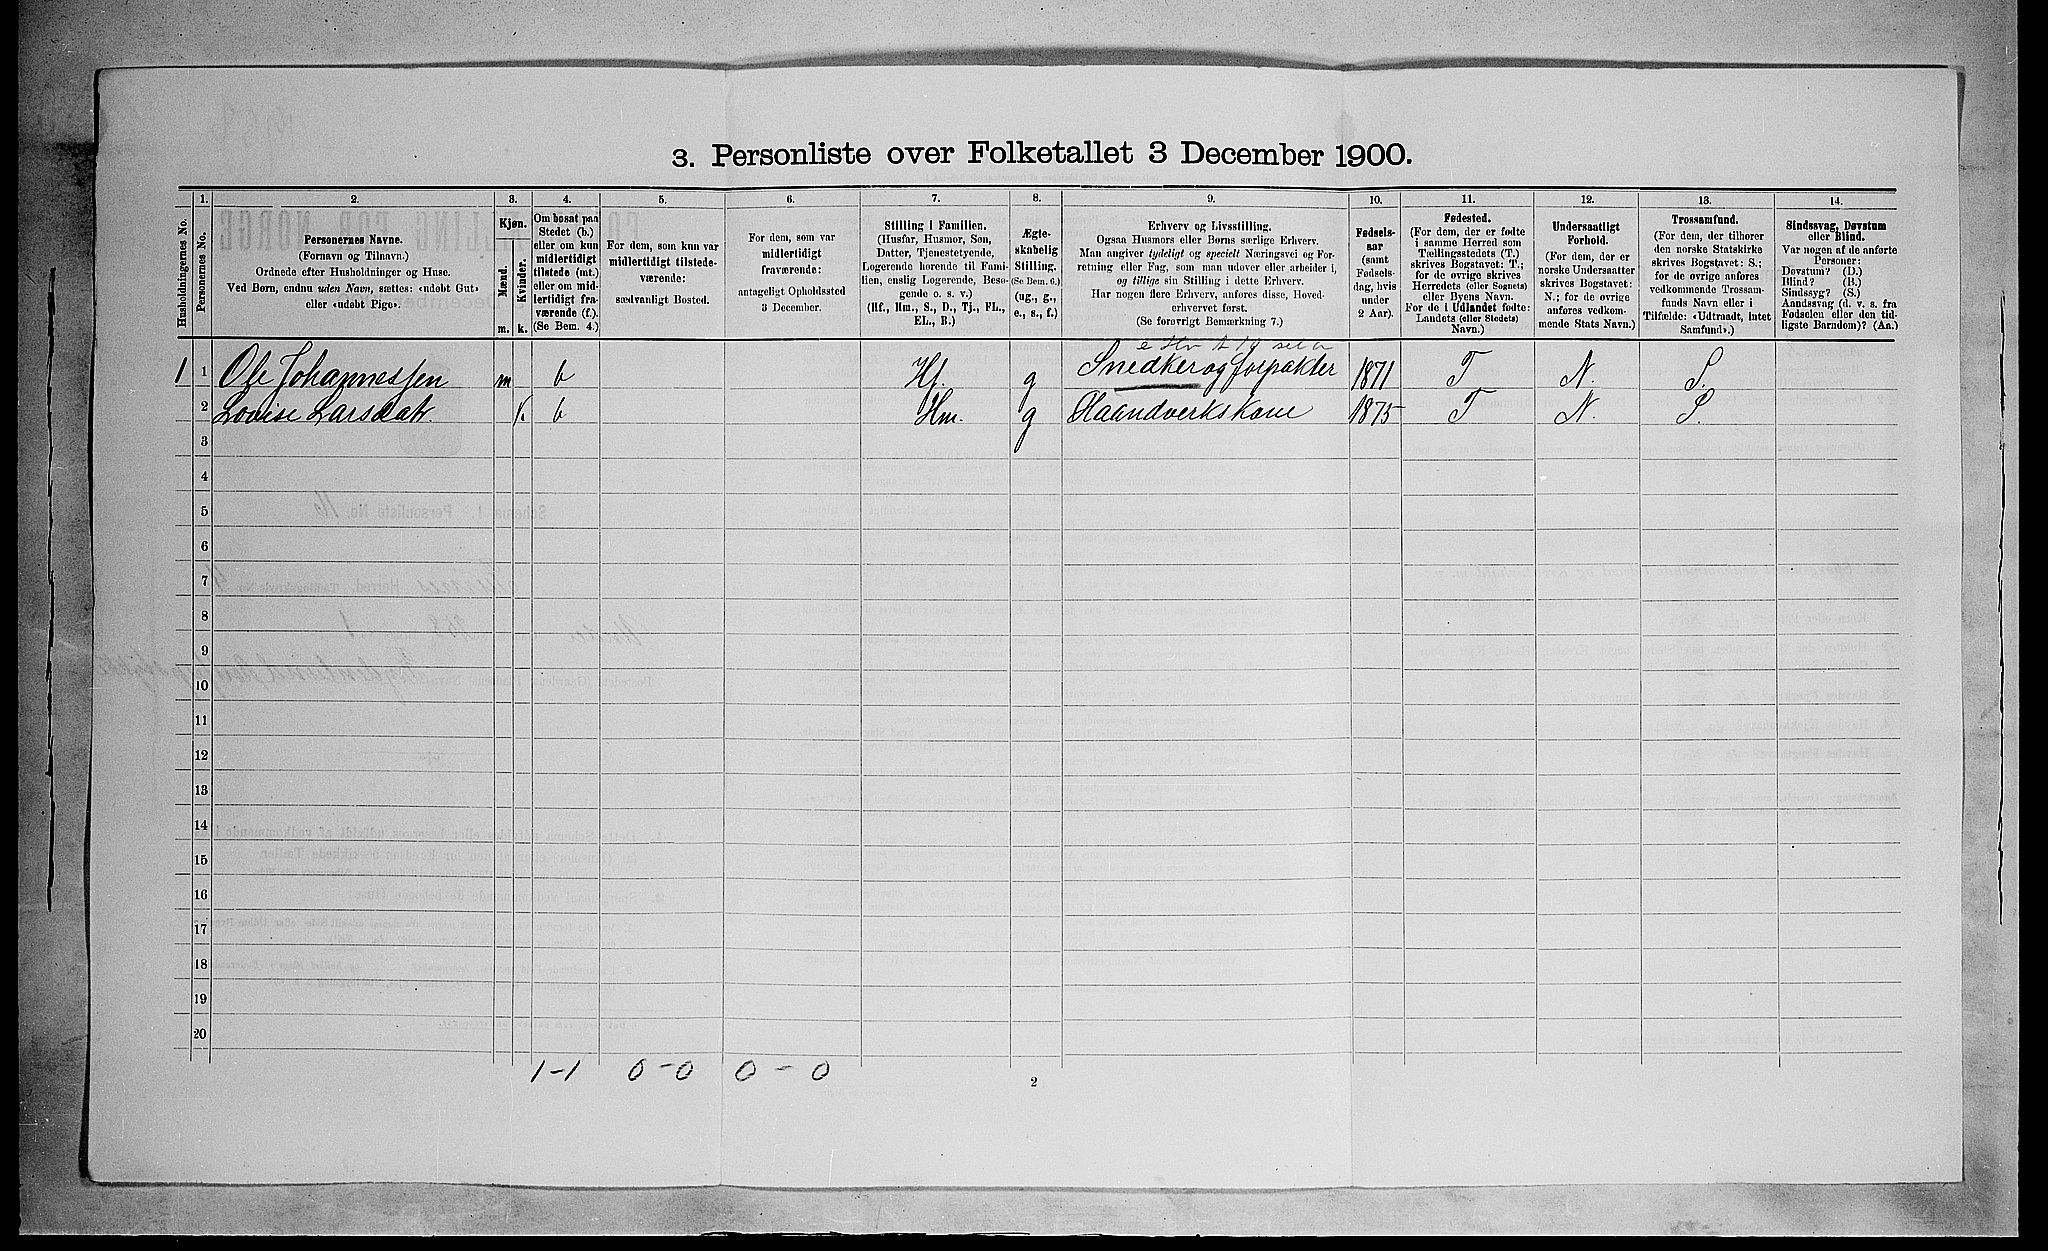 3. Personliste over Folketallet 3 December 1900.
1. 2. 3. 4. 5. 6. 7. 8. 9. 10. 11. 12. 13. 14.
Husholdningernes No.
Personernes No.
Personernes Navne.
(Fornavn og Tilnavn.)
Ordnede efter Husholdninger og Huse.
Ved Børn, endnu uden Navn, sættes: «udøbt Gut»
eller «udøbt Pige».
Kjøn.
Mænd.
Kvinder.
m. k.
Om bosat paa
Stedet (b.)
eller om kun
midlertidigt
tilstede (mt.)
eller om mid-
lertidigt fra-
værende (f.).
(Se Bem. 4.)
For dem, som kun var
midlertidigt tilstede-
værende:
sædvanligt Bosted.
For dem, som var
midlertidigt
fraværende:
antageligt Opholdssted
3 December.
Stilling i Familien.
(Husfar, Husmor, Søn,
Datter, Tjenestetyende,
Logerende hørende til Fami-
lien, enslig Logerende, Besø-
gende o. s. v.)
(Hf., Hm., S., D., Tj., FL.,
EL., B.)
Ægte-
skabelig
Stilling.
(Se Bem. 6.)
(ug., g.,
e., s., f.)
Erhverv og Livsstilling.
Ogsaa Husmors eller Børns særlige Erhverv.
Man angiver tydeligt og specielt Næringsvei og For-
retning eller Fag, som man udøver eller arbeider i,
og tillige sin Stilling i dette Erhverv.
Har nogen flere Erhverv, anføres disse, Hoved-
erhvervet først.
(Se forøvrigt Bemærkning 7.)
Fødsels-
aar
(samt
Fødsels-
dag, hvis
under
2 Aar).
Fødested.
(For dem, der er fødte
i samme Herred som
Tællingsstedets (T.)
skrives Bogstavet: T.;
for de øvrige skrives
Herredets (eller Sognets)
eller Byens Navn.
For de i Udlandet fødte:
Landets (eller Stedets)
Navn.)
Undersaatligt
Forhold.
(For dem, der er
norske Undersaatter
skrives Bogstavet:
N.; for de øvrige
anføres vedkom-
mende Stats Navn.)
Trossamfund.
(For dem, der tilhører
den norske Statskirke
skrives Bogstavet: S.;
for de øvrige anføres
vedkommende Trossam-
funds Navn eller i
Tilfælde: «Udtraadt, intet
Samfund».)
Sindssvag, Døvstum
eller Blind.
Var nogen af de anførte
Personer:
Døvstum? (D.)
Blind? (B.)
Sindssyg? (S.)
Aandssvag (d. v. s. fra
Fødselen eller den tid-
ligste Barndom)? (Aa.)
1 1 Ole Johannessen m b Hf. g Snedker og forpakter 1871 T N. S.
2 Lovise Larsdatr. k. b Hm. g Haandverkskone 1875 T N. S.
3
4
5
6
7
8
9
10
11
12
13
14
15
16
17
18
19
20
1-1 0-0 0-0
2